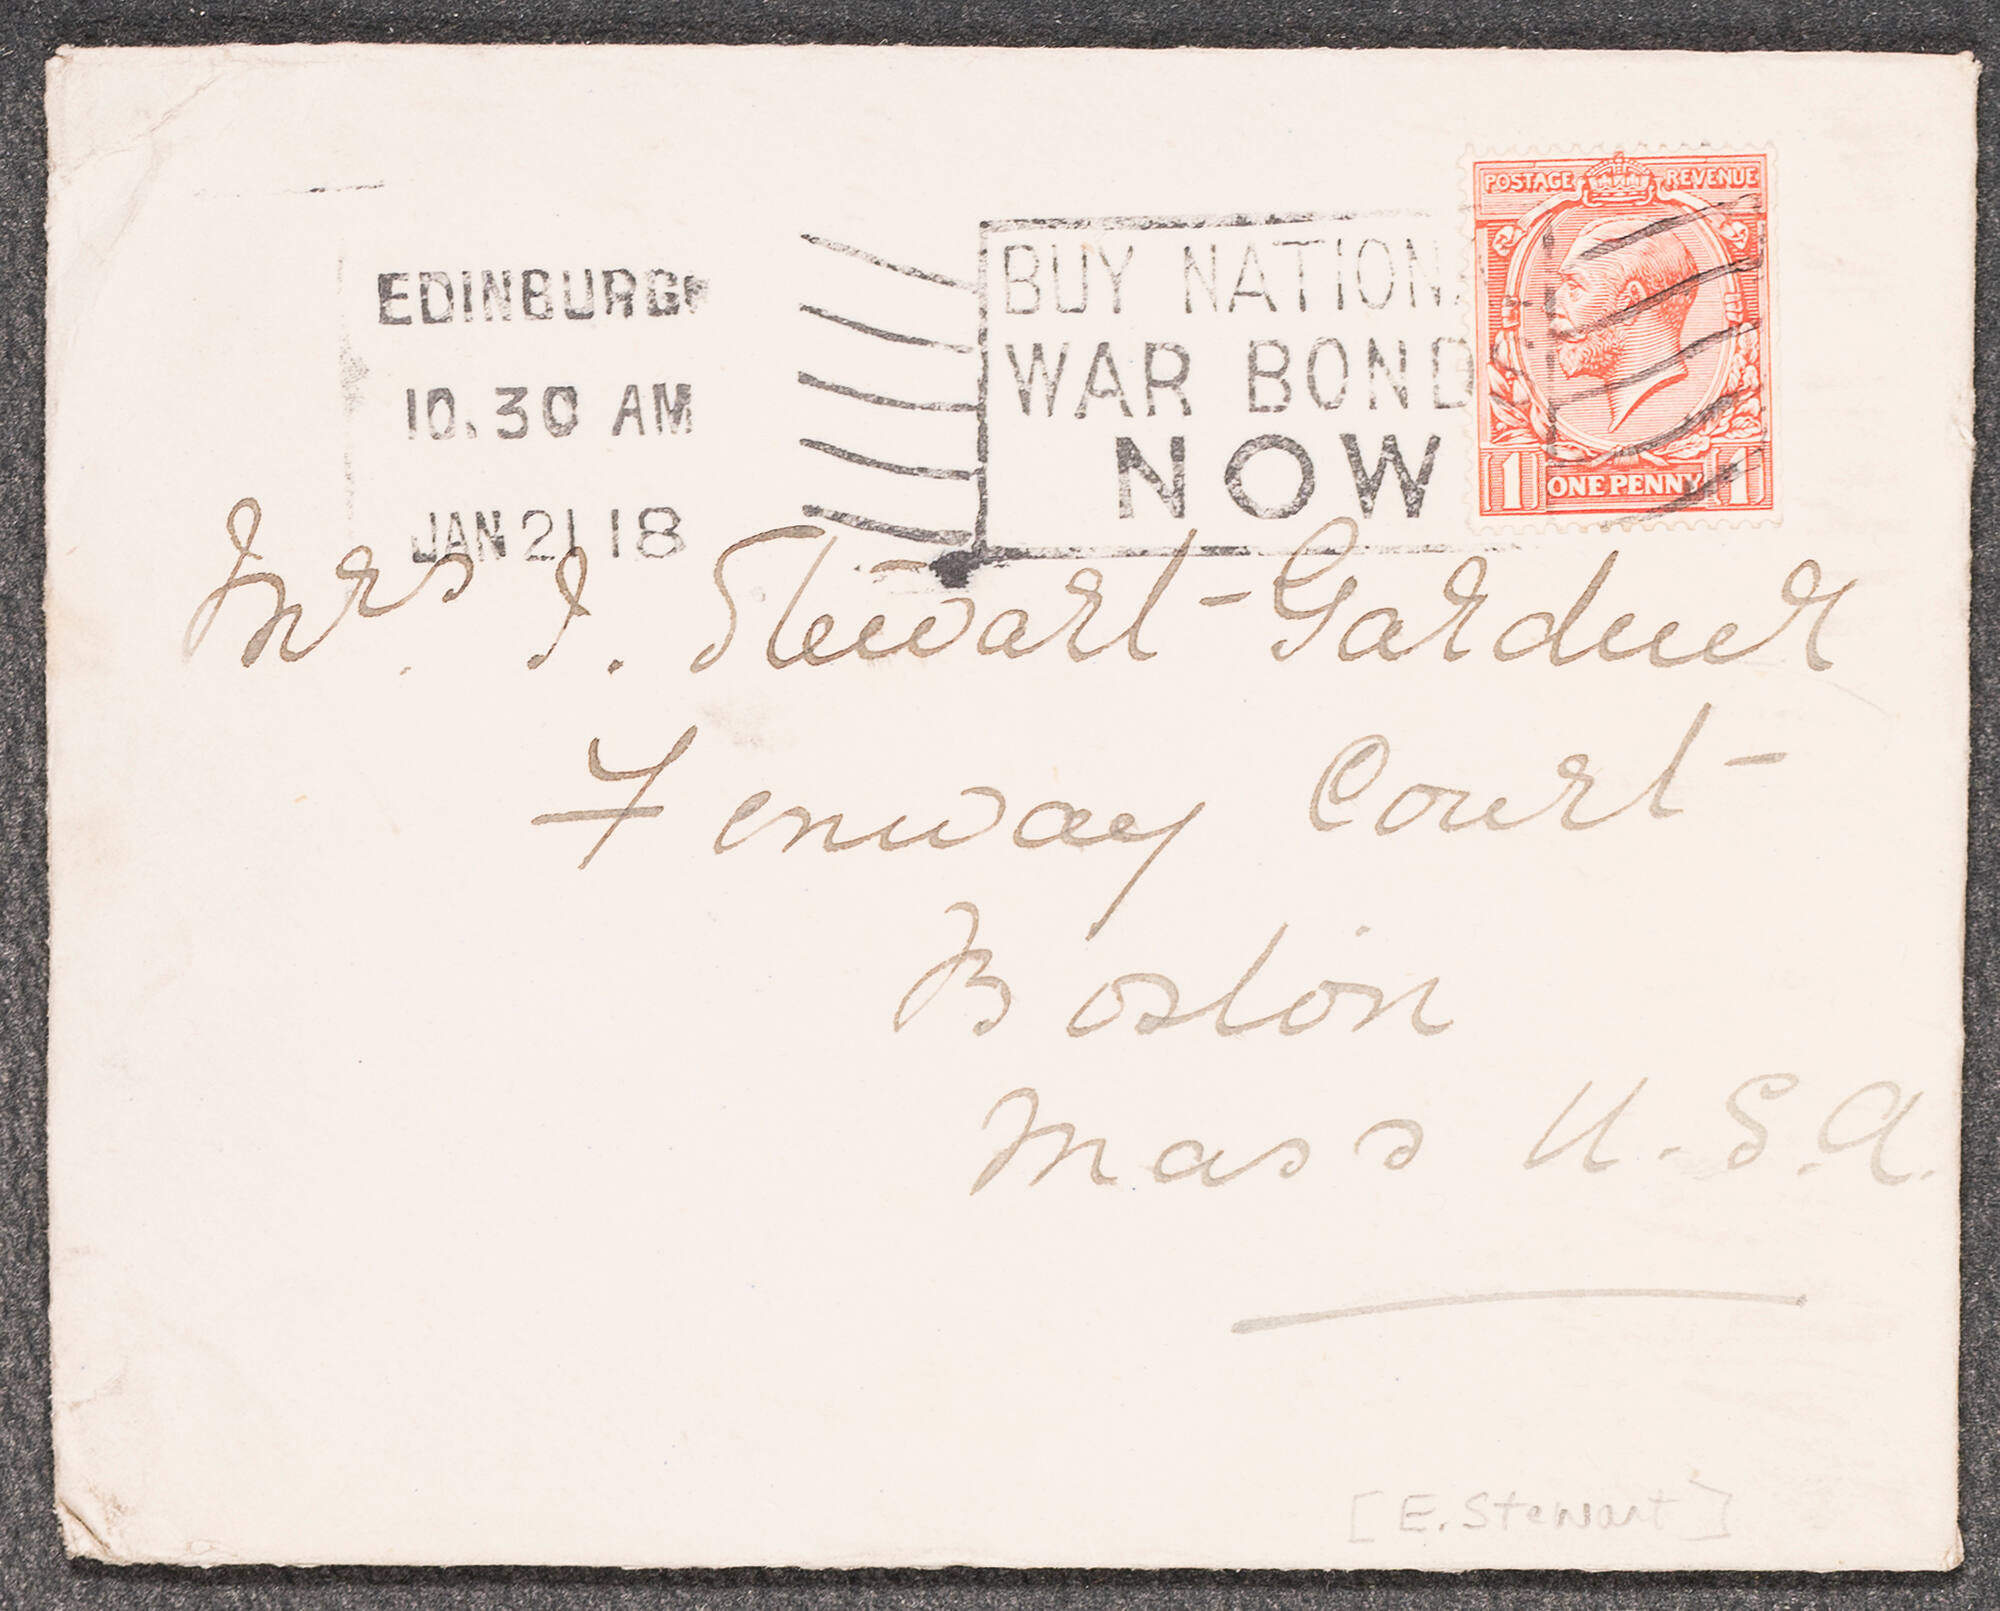 POSTAGE REVENUE
EDINBURGH
10.30 AM
JAN 21 18
BUY NATIONA
WAR BONDS
NOW
1 ONE PENNY 1
Mrs. J. Stewart-Gardner
Fenway Court
Boston
Mass U.S.A.
[E. Stewart]